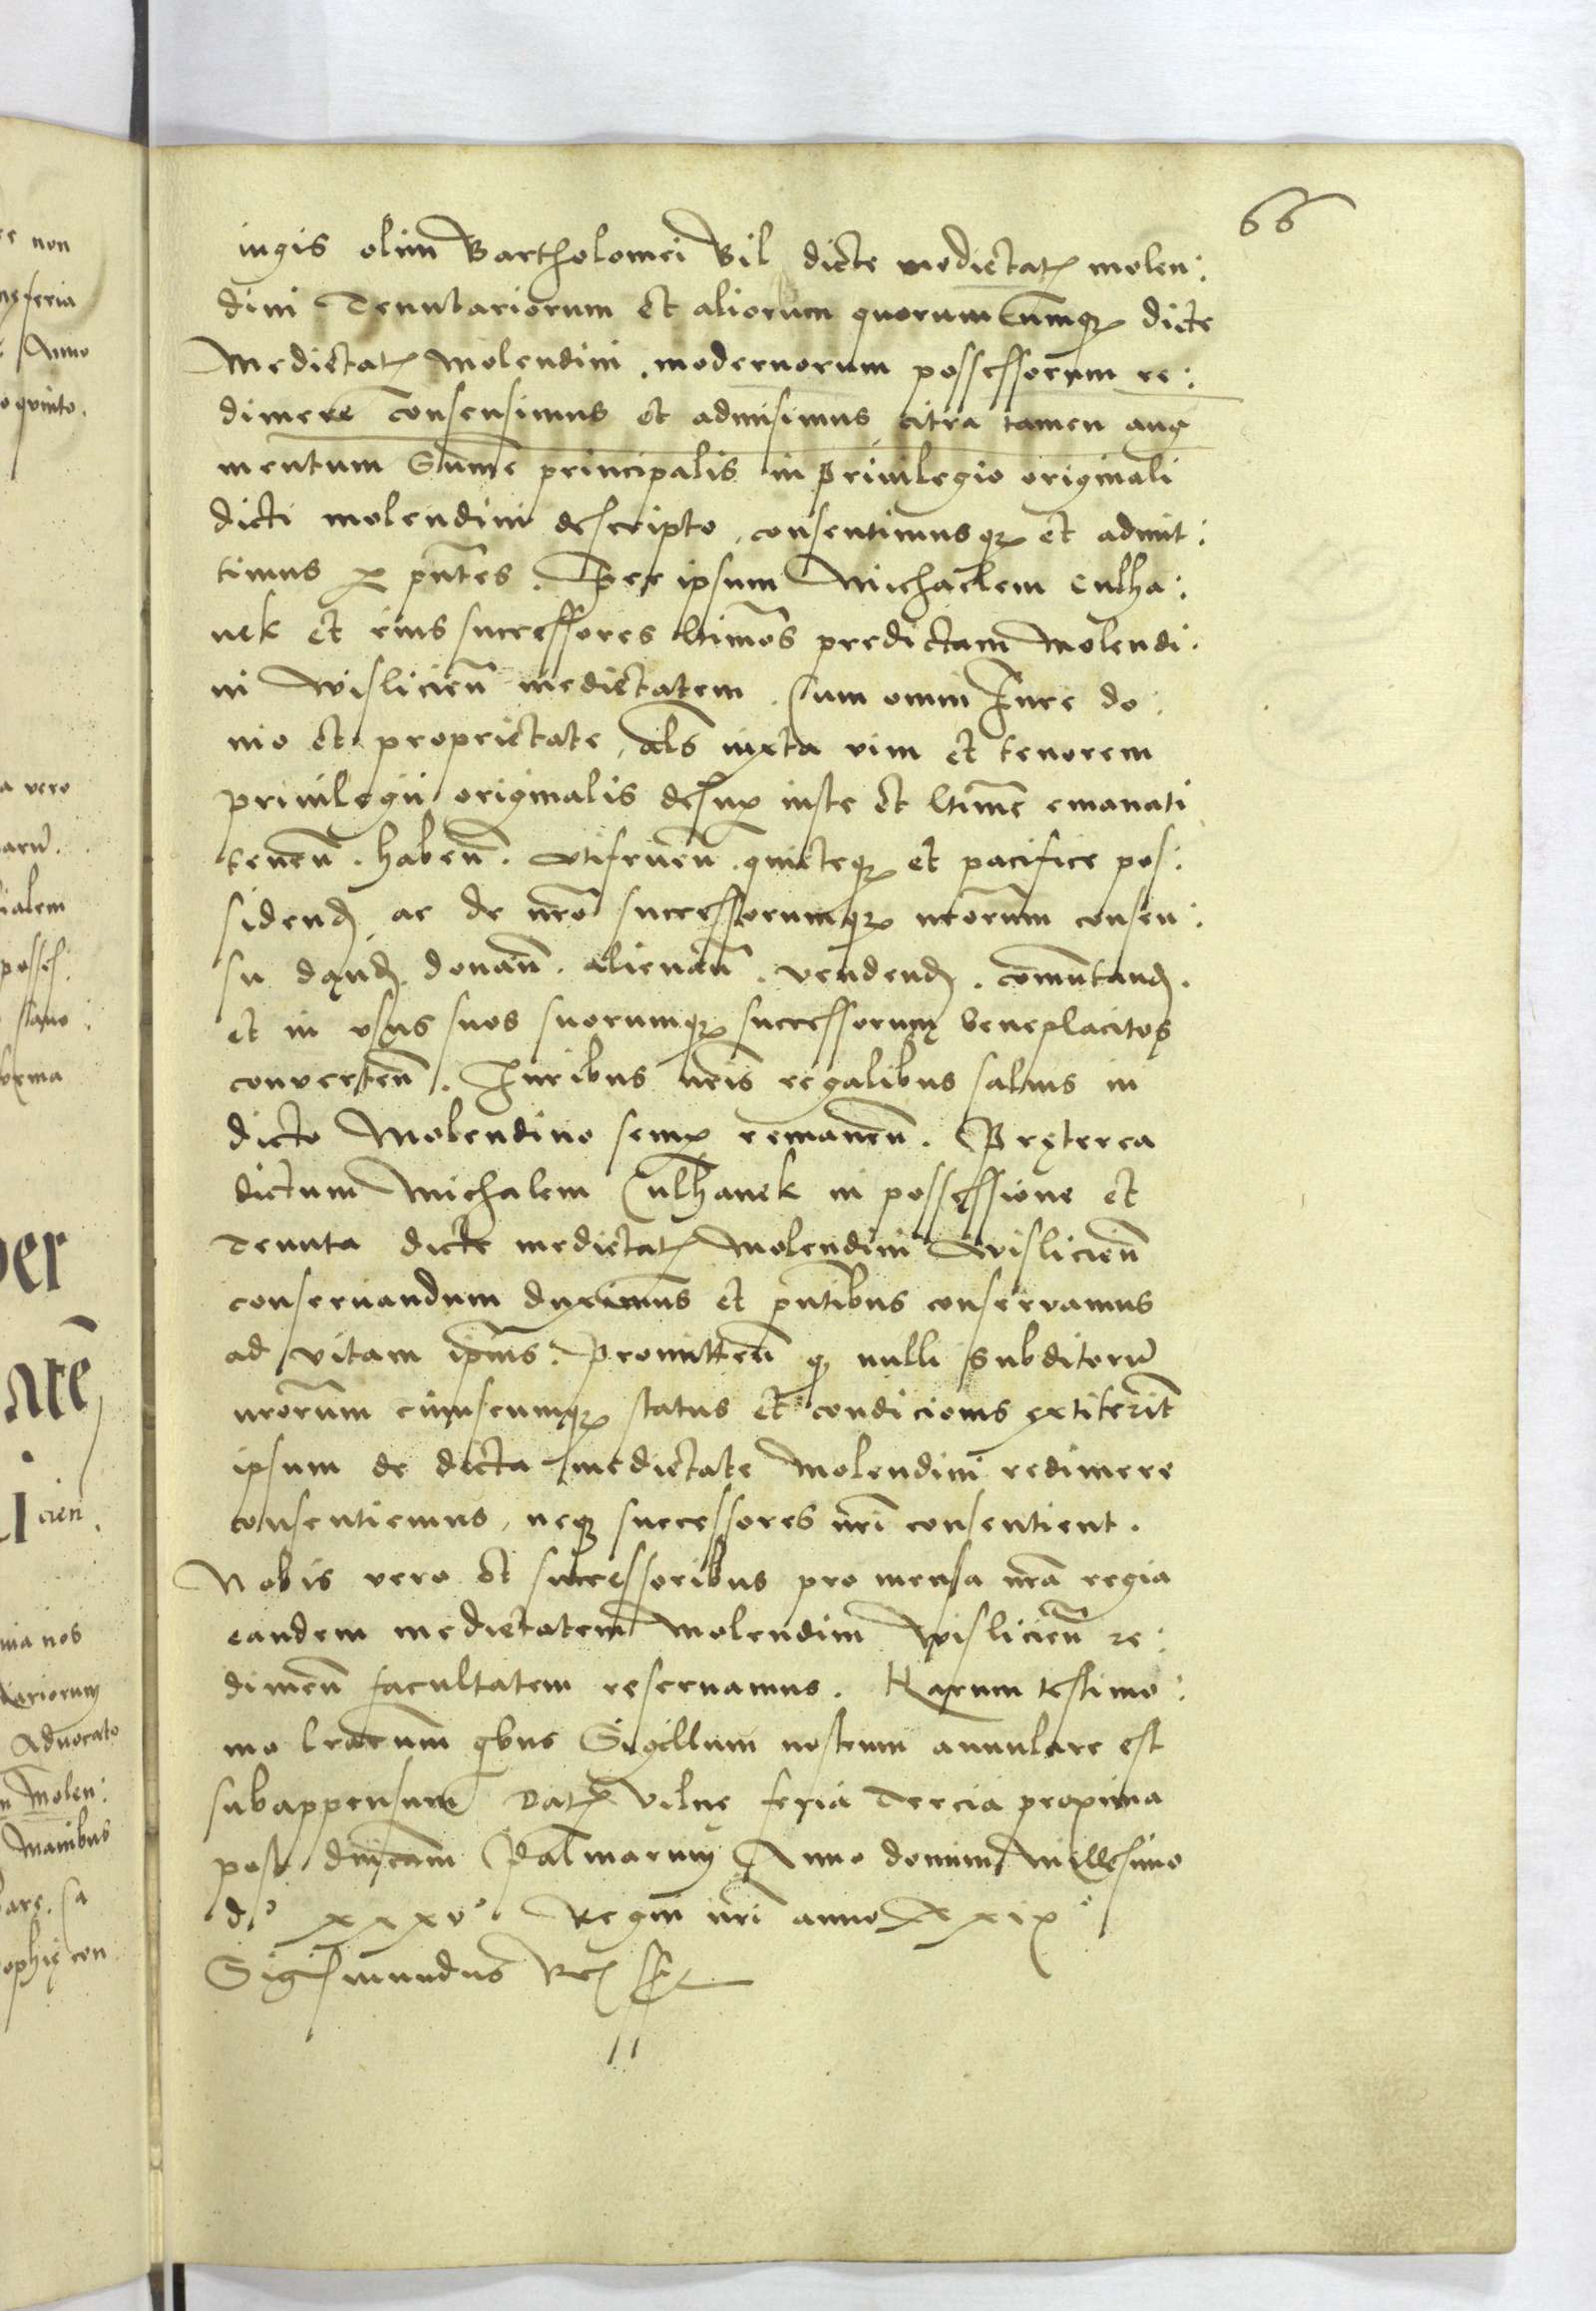 66
iugis olim Bartholomei Bil dicte medietat(is) molen:
dini Tenutariorum et aliorum quorumcu̅mq(ue) dicte
Medietat(is) Molendini modernorum possessorum re:
dimere consensimus et admisimus citra tamen aug
mentum Su̅me principalis in Privilegio originali
dicti molendini descripto, consentimusq(ue) et admit:
timus p(er) pn̅tes. Per ipsum Michaelem Culha:
nek et eius successores ltimos predictam Molendi:
ni Wislicien̅ medietatem. Cum omni Iure do:
nio et proprietate, als̅ iuxta vim et tenorem
privilegii originalis desup(er) iuste et ltime emanati
tenen̅. haben̅. utifruen̅. quieteq(ue) et pacifice pos:
sidend(am) ac de nr̅o successorumq(ue) nr̅orum consen:
su dand(am) donan̅. alienan̅. vendend(am). com̅utand(am).
et in usus suos suorumq(ue) successorum beneplacitos
converten̅. Iuribus nr̅is regalibus salvis in
dicto Molendino semp(er) remanen̅. Pręterea
dictum Michalem Culhanek in possessione et
Tenuta dicte medietat(is) Molendini Wislicien̅
conservandum duximus et pn̅tibus conservamus
ad vitam ip̅ius. Promitten̅ q(uod) nulli subditoru̅
nr̅orum cuiuscumq(ue) status et condicionis extiterit
ipsum de dicta medietate Molendini redimere
consentiemus, neq(ue) successores nr̅i consentient.
Nobis vero et successoribus pro mensa nr̅a regia
eandem medietatem Molendini Wislicien̅ re:
dimen̅ facultatem reservamus. Harum testimo:
nio lr̅arum q(ui)bus Sigillum nostrum annulare est
subappensum Dat(um) Vilnę feria Tercia proxima
post dn̅icam Palmarum Anno domini Millesimo
d° xxxv° Regni nr̅i anno xxix°
Sigismundus Rex